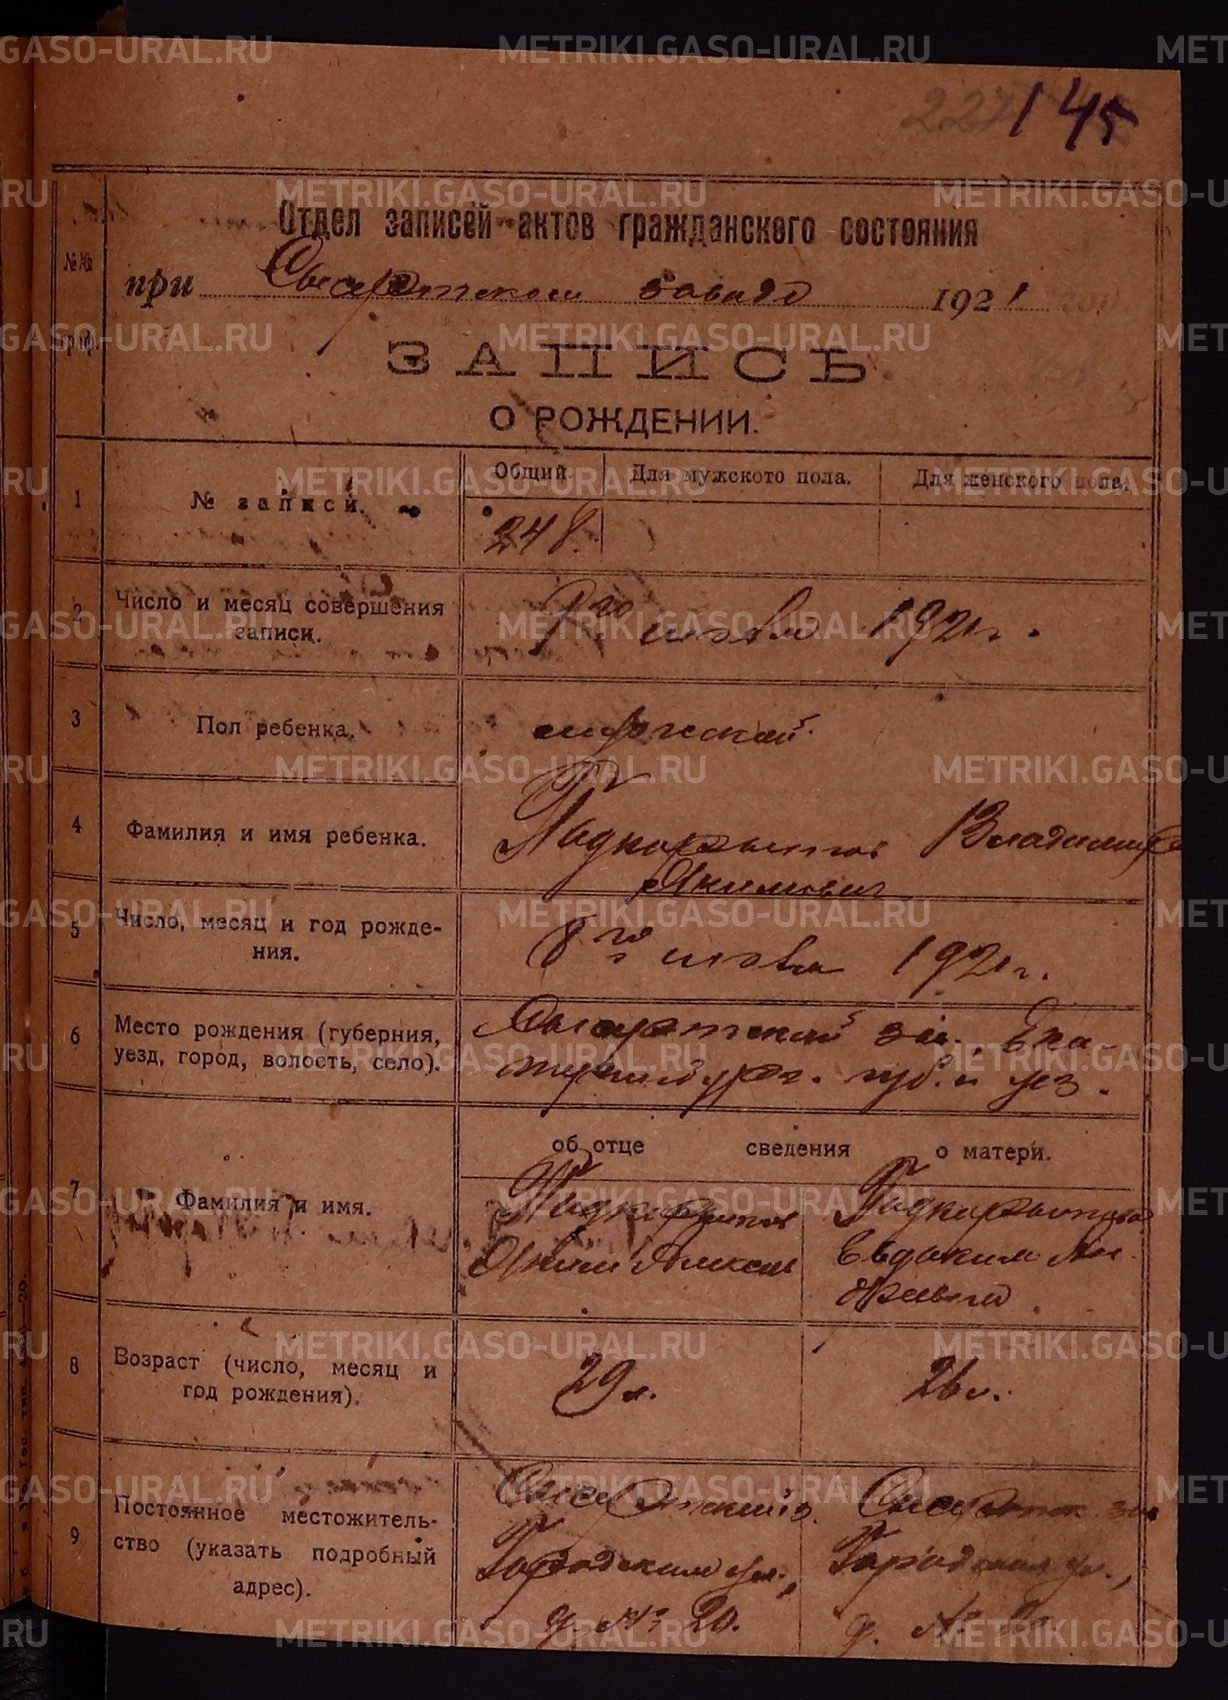 METRIKI.GASO-URAL.RU
227 145
Отдел записей актов гражданского состояния
№№ граф.
при Сысертском заводе 1921 года
ЗАПИСЬ
О РОЖДЕНИИ.
Общий. Для мужского пола. Для женского пола.
1 № записи. 248.
2 Число и месяц совершения
записи.
июля 1921 г.
3 Пол ребенка. мужской.
4 Фамилия и имя ребенка. Подкорытов Владимир
Якимович
5 Число, месяц и год рожде-
ния.
8го июля 1921 г.
6 Место рождения (губерния,
уезд, город, волость, село).
Сысертский зав. Ека-
теринбург. губ. и уез.
об отце сведения о матери.
7 Фамилия и имя.
Подкорытов
Яким Алексеев
Подкорытова
Евдокия Ан
дреевна
8 Возраст (число, месяц и
год рождения).
29 л. 26 л.
9 Постоянное местожитель-
ство (указать подробный
адрес).
Сысертский з.
Городская ул.,
д. № 20.
Сысертск. зав
Городская ул.,
д. №